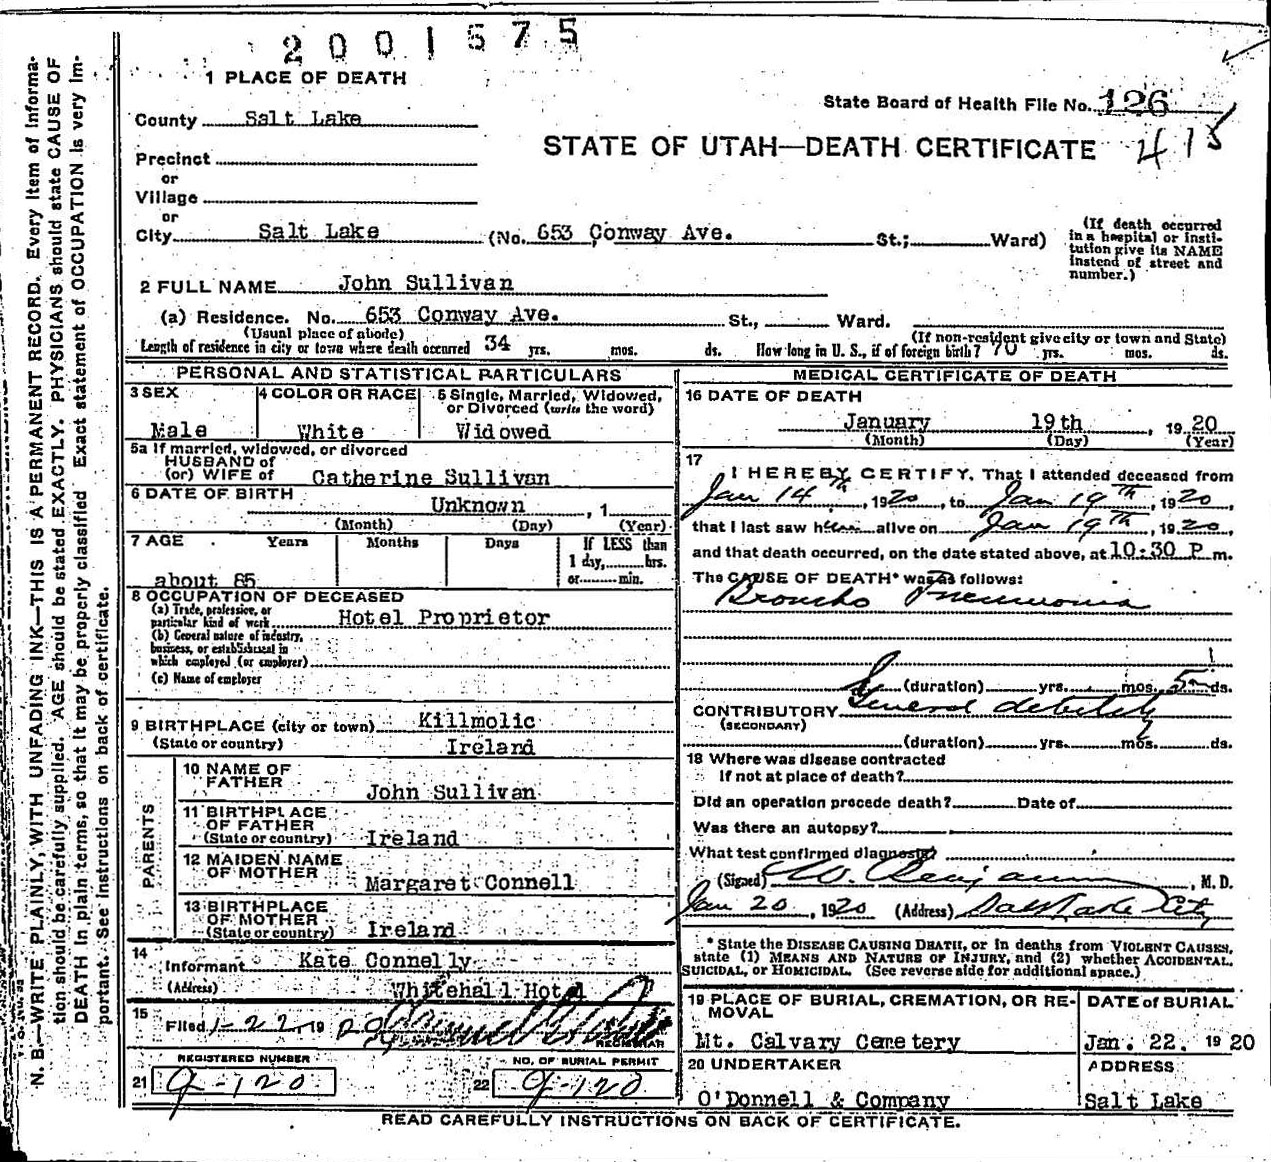 2001575
1 PLACE OF DEATH
State Board of Health File No. 126
County Salt Lake
STATE OF UTAH—DEATH CERTIFICATE 415
Precinct
or
Village
or
City Salt Lake (No. 653 Conway Ave. St.; Ward)
(If death occurred in a hospital or institution give its NAME instead of street and number.)
2 FULL NAME John Sullivan
(a) Residence. No. 653 Conway Ave. St., Ward.
(Usual place of abode) (If non-resident give city or town and State)
Length of residence in city or town where death occurred 34 yrs. mos. ds. How long in U. S., if of foreign birth? 70 yrs. mos. ds.
PERSONAL AND STATISTICAL PARTICULARS
3 SEX 4 COLOR OR RACE 5 Single, Married, Widowed, or Divorced (write the word)
Male White Widowed
5a If married, widowed, or divorced
HUSBAND of
(or) WIFE of Catherine Sullivan
6 DATE OF BIRTH Unknown, 1
(Month) (Day) (Year)
7 AGE Years Months Days If LESS than
1 day, hrs.
or min.
about 85
8 OCCUPATION OF DECEASED
(a) Trade, profession, or
particular kind of work Hotel Proprietor
(b) General nature of industry,
business, or establishment in
which employed (or employer)
(c) Name of employer
9 BIRTHPLACE (city or town) Killmolic
(State or country) Ireland
PARENTS
10 NAME OF
FATHER John Sullivan
11 BIRTHPLACE
OF FATHER
(State or country) Ireland
12 MAIDEN NAME
OF MOTHER Margaret Connell
13 BIRTHPLACE
OF MOTHER
(State or country) Ireland
14
Informant Kate Connelly
(Address) Whitehall Hotel
15
Filed 1-22 1920
REGISTRAR
REGISTERED NUMBER NO. OF BURIAL PERMIT
21 9-120 22 9-120
MEDICAL CERTIFICATE OF DEATH
16 DATE OF DEATH
January 19th, 1920
(Month) (Day) (Year)
17
I HEREBY CERTIFY, That I attended deceased from
Jan 14th, 1920, to Jan 19th, 1920,
that I last saw him alive on Jan 19th, 1920,
and that death occurred, on the date stated above, at 10:30 P m.
The CAUSE OF DEATH* was as follows:
Broncho Pneumonia
(duration) yrs. mos. 5 ds.
CONTRIBUTORY General debility
(SECONDARY)
(duration) yrs. mos. ds.
18 Where was disease contracted
if not at place of death?
Did an operation precede death? Date of
Was there an autopsy?
What test confirmed diagnosis?
(Signed) W. Benjamin, M. D.
Jan 20, 1920 (Address) Salt Lake City
* State the DISEASE CAUSING DEATH, or in deaths from VIOLENT CAUSES,
state (1) MEANS AND NATURE OF INJURY, and (2) whether ACCIDENTAL,
SUICIDAL, or HOMICIDAL. (See reverse side for additional space.)
19 PLACE OF BURIAL, CREMATION, OR RE-
MOVAL
Mt. Calvary Cemetery
DATE of BURIAL
Jan. 22. 1920
20 UNDERTAKER
O'Donnell & Company
ADDRESS
Salt Lake
READ CAREFULLY INSTRUCTIONS ON BACK OF CERTIFICATE.
N. B.—WRITE PLAINLY, WITH UNFADING INK—THIS IS A PERMANENT RECORD. Every item of informa-
tion should be carefully supplied. AGE should be stated EXACTLY. PHYSICIANS should state CAUSE OF
DEATH in plain terms, so that it may be properly classified. Exact statement of OCCUPATION is very im-
portant. See instructions on back of certificate.